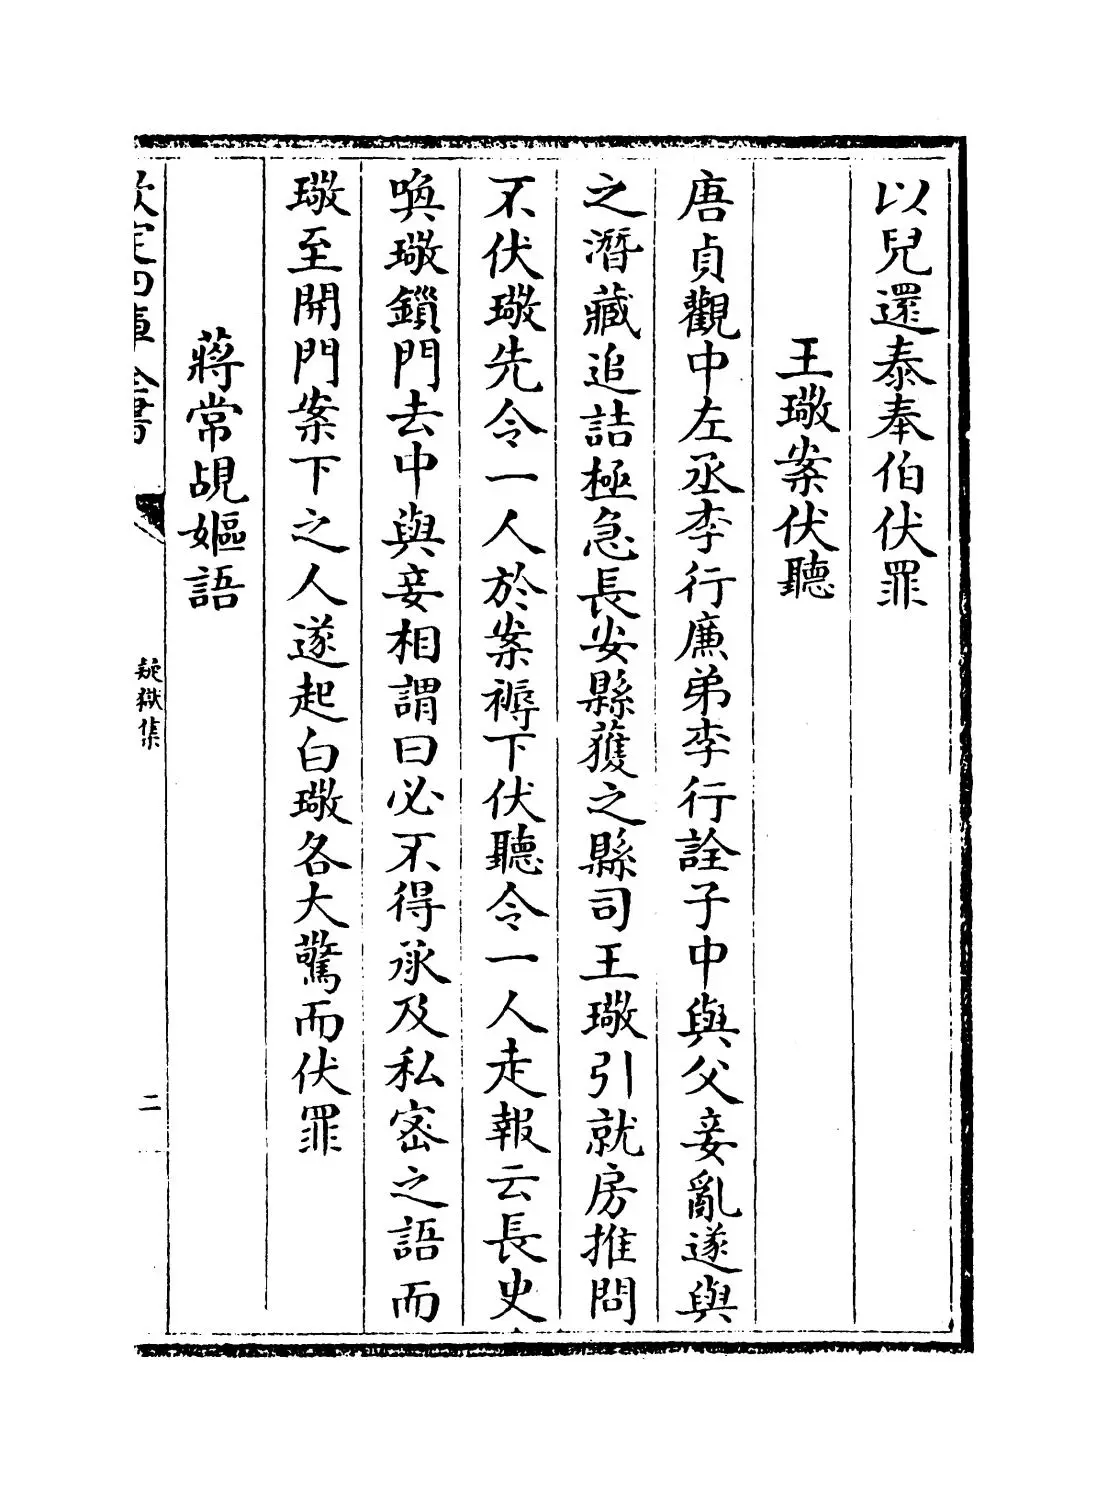 以兒還泰奉伯伏罪
王璥案伏聽
唐貞觀中左丞李行廉弟李行詮子中與父妾亂遂與
之潛藏追詰極急長安縣獲之縣司王璥引就房推問
不伏璥先令一人於案褥下伏聽令一人走報云長史
喚璥鎖門去中與妾相謂曰必不得承及私密之語而
璥至開門案下之人遂起白璥各大驚而伏罪
蔣常覘嫗語
欽定四庫全書
疑獄集
二